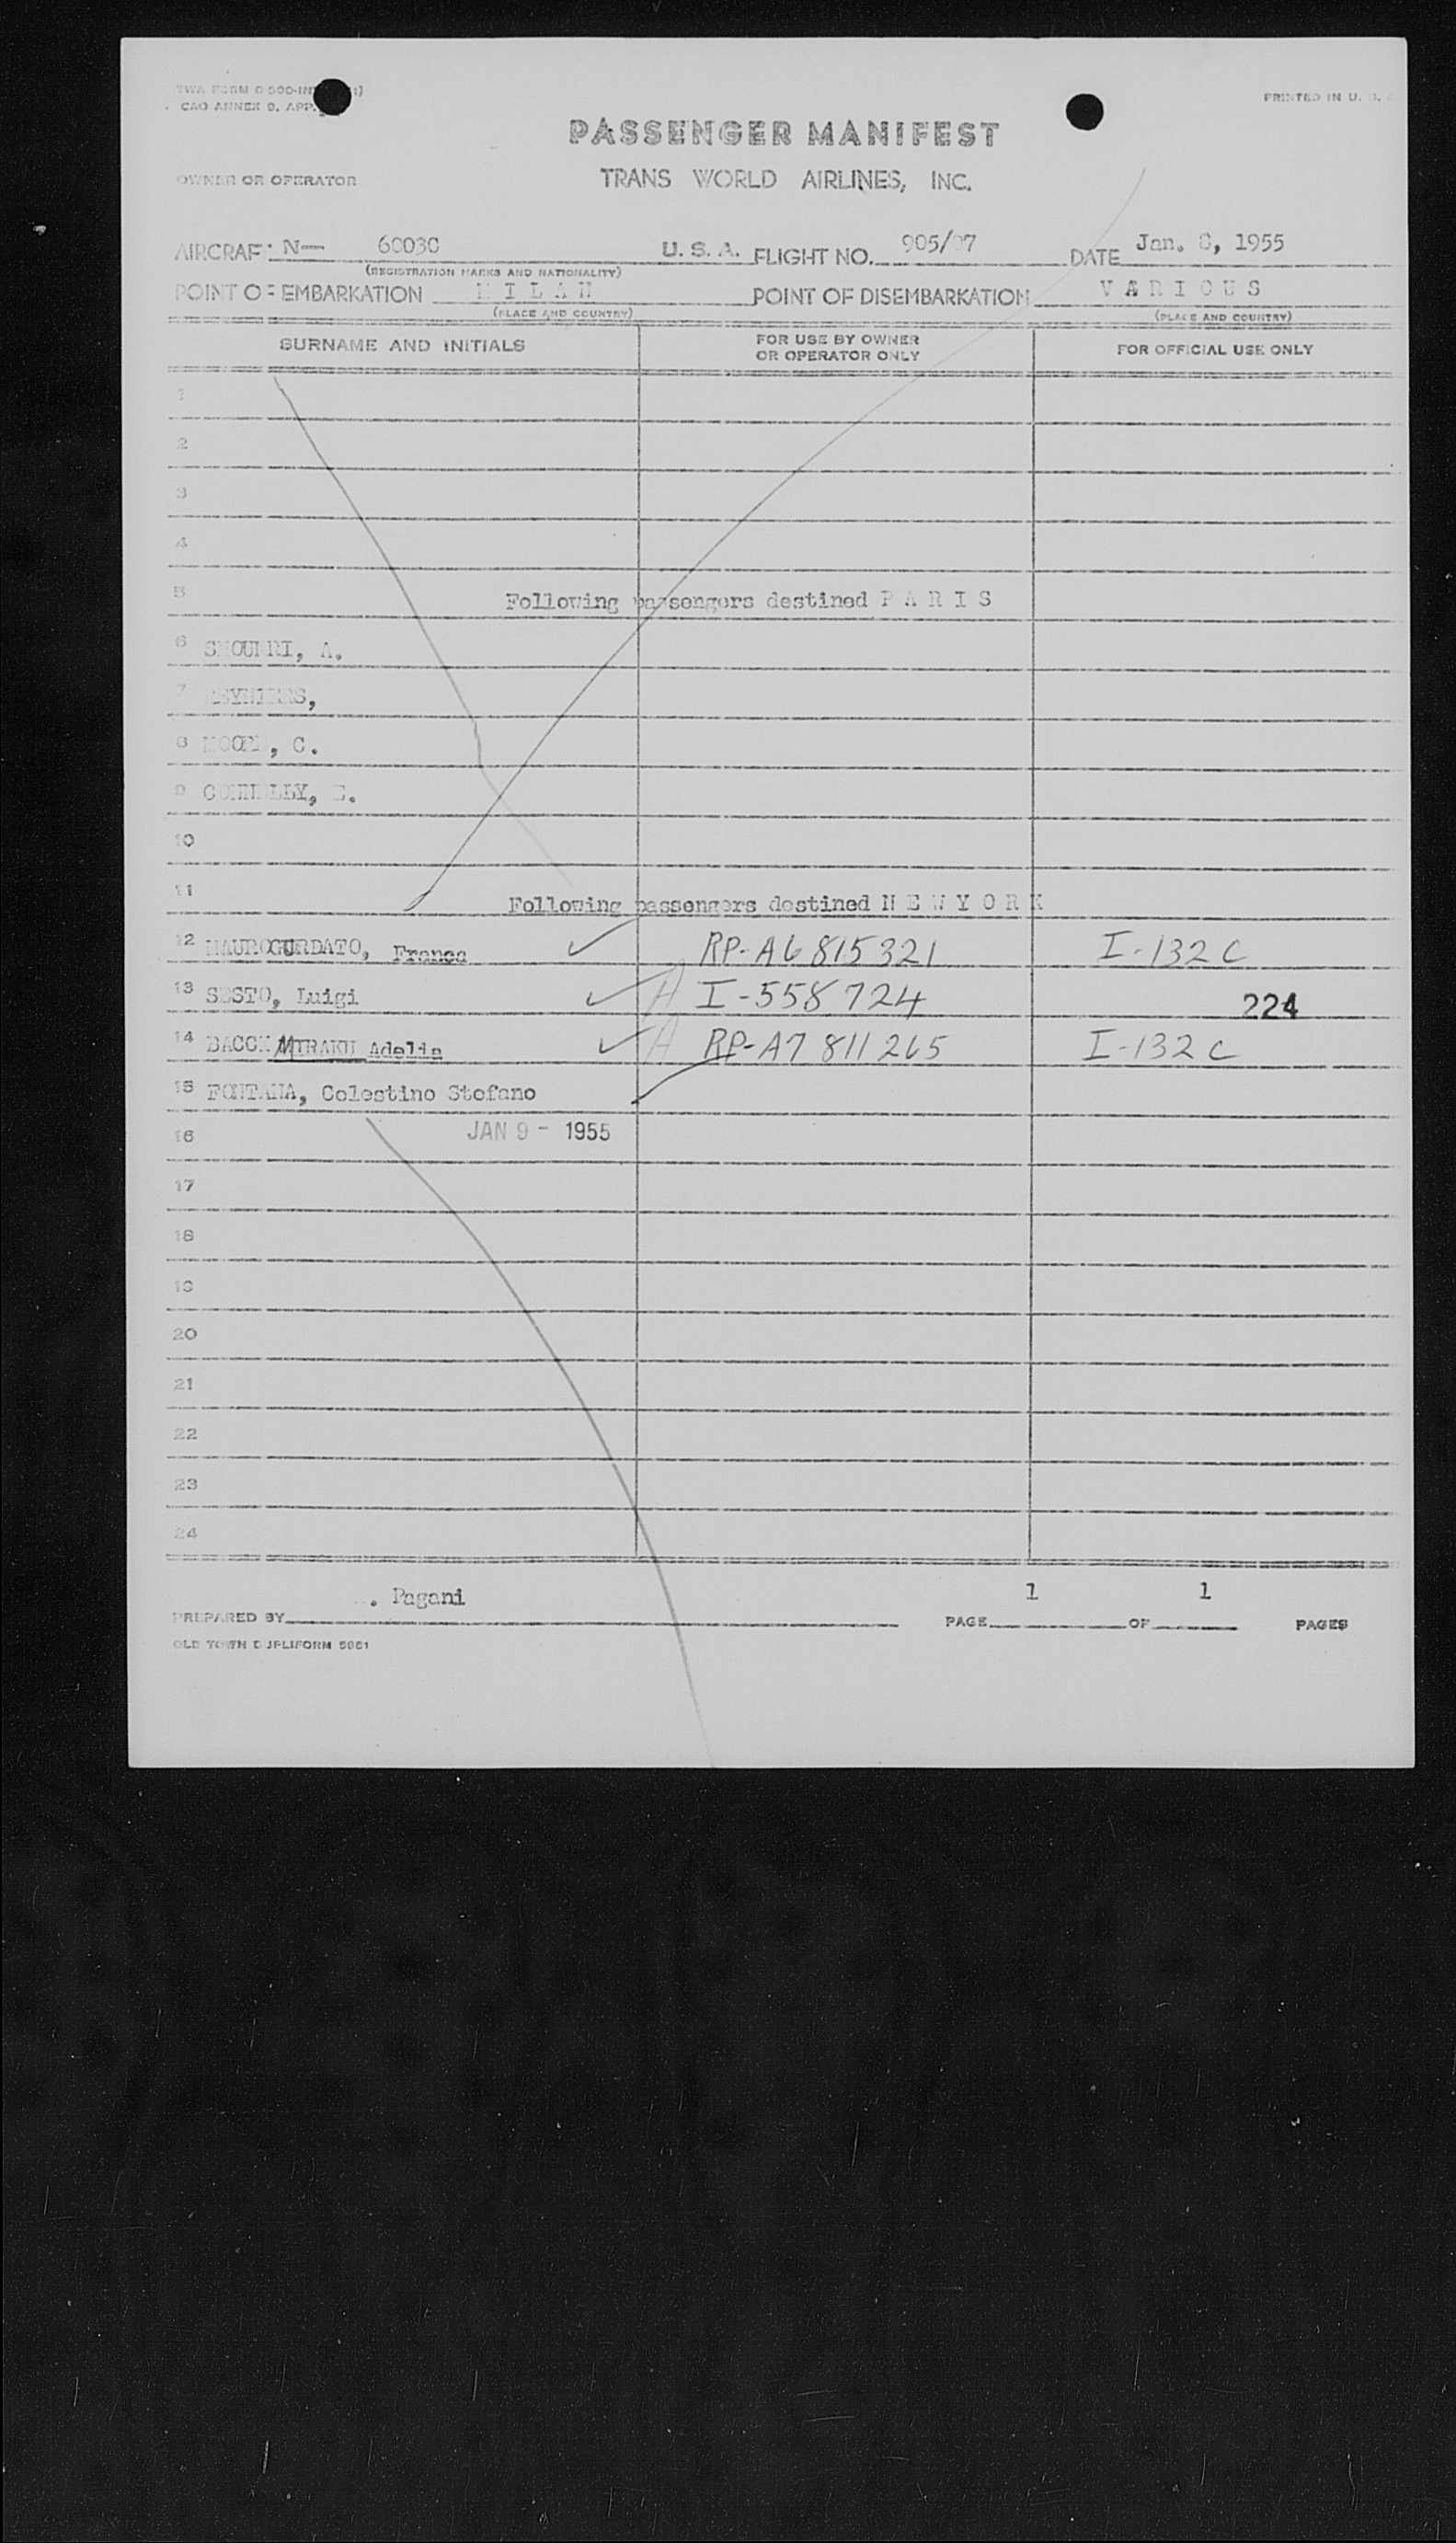 TWA FORM
CAO ANNEX 9, APP.
PRINTED IN U. S.
PASSENGER MANIFEST
OWNER OR OPERATOR TRANS WORLD AIRLINES, INC.
AIRCRAFT N— 60030 U. S. A. FLIGHT NO. 905/ 7 DATE Jan. 8, 1955
(REGISTRATION MARKS AND NATIONALITY)
POINT OF EMBARKATION M I L A N POINT OF DISEMBARKATION V A R I O U S
(PLACE AND COUNTRY) (PLACE AND COUNTRY)
SURNAME AND INITIALS FOR USE BY OWNER OR OPERATOR ONLY FOR OFFICIAL USE ONLY
1
2
3
4
5 Following passengers destined P A R I S
6 A.
7
8 C.
9
10
11 Following passengers destined N E W Y O R K
12 MAUROGURDATO, Franca RP-A6 815321 I-132 C
13 SESTO, Luigi A I-558724 224
14 Adelia A RP-A7 811265 I-132 C
15 FONTANA, Celestino Stefano
16 JAN 9 - 1955
17
18
19
20
21
22
23
24
PREPARED BY Pagani PAGE 1 OF 1 PAGES
OLD TOWN DUPLIFORM 5981